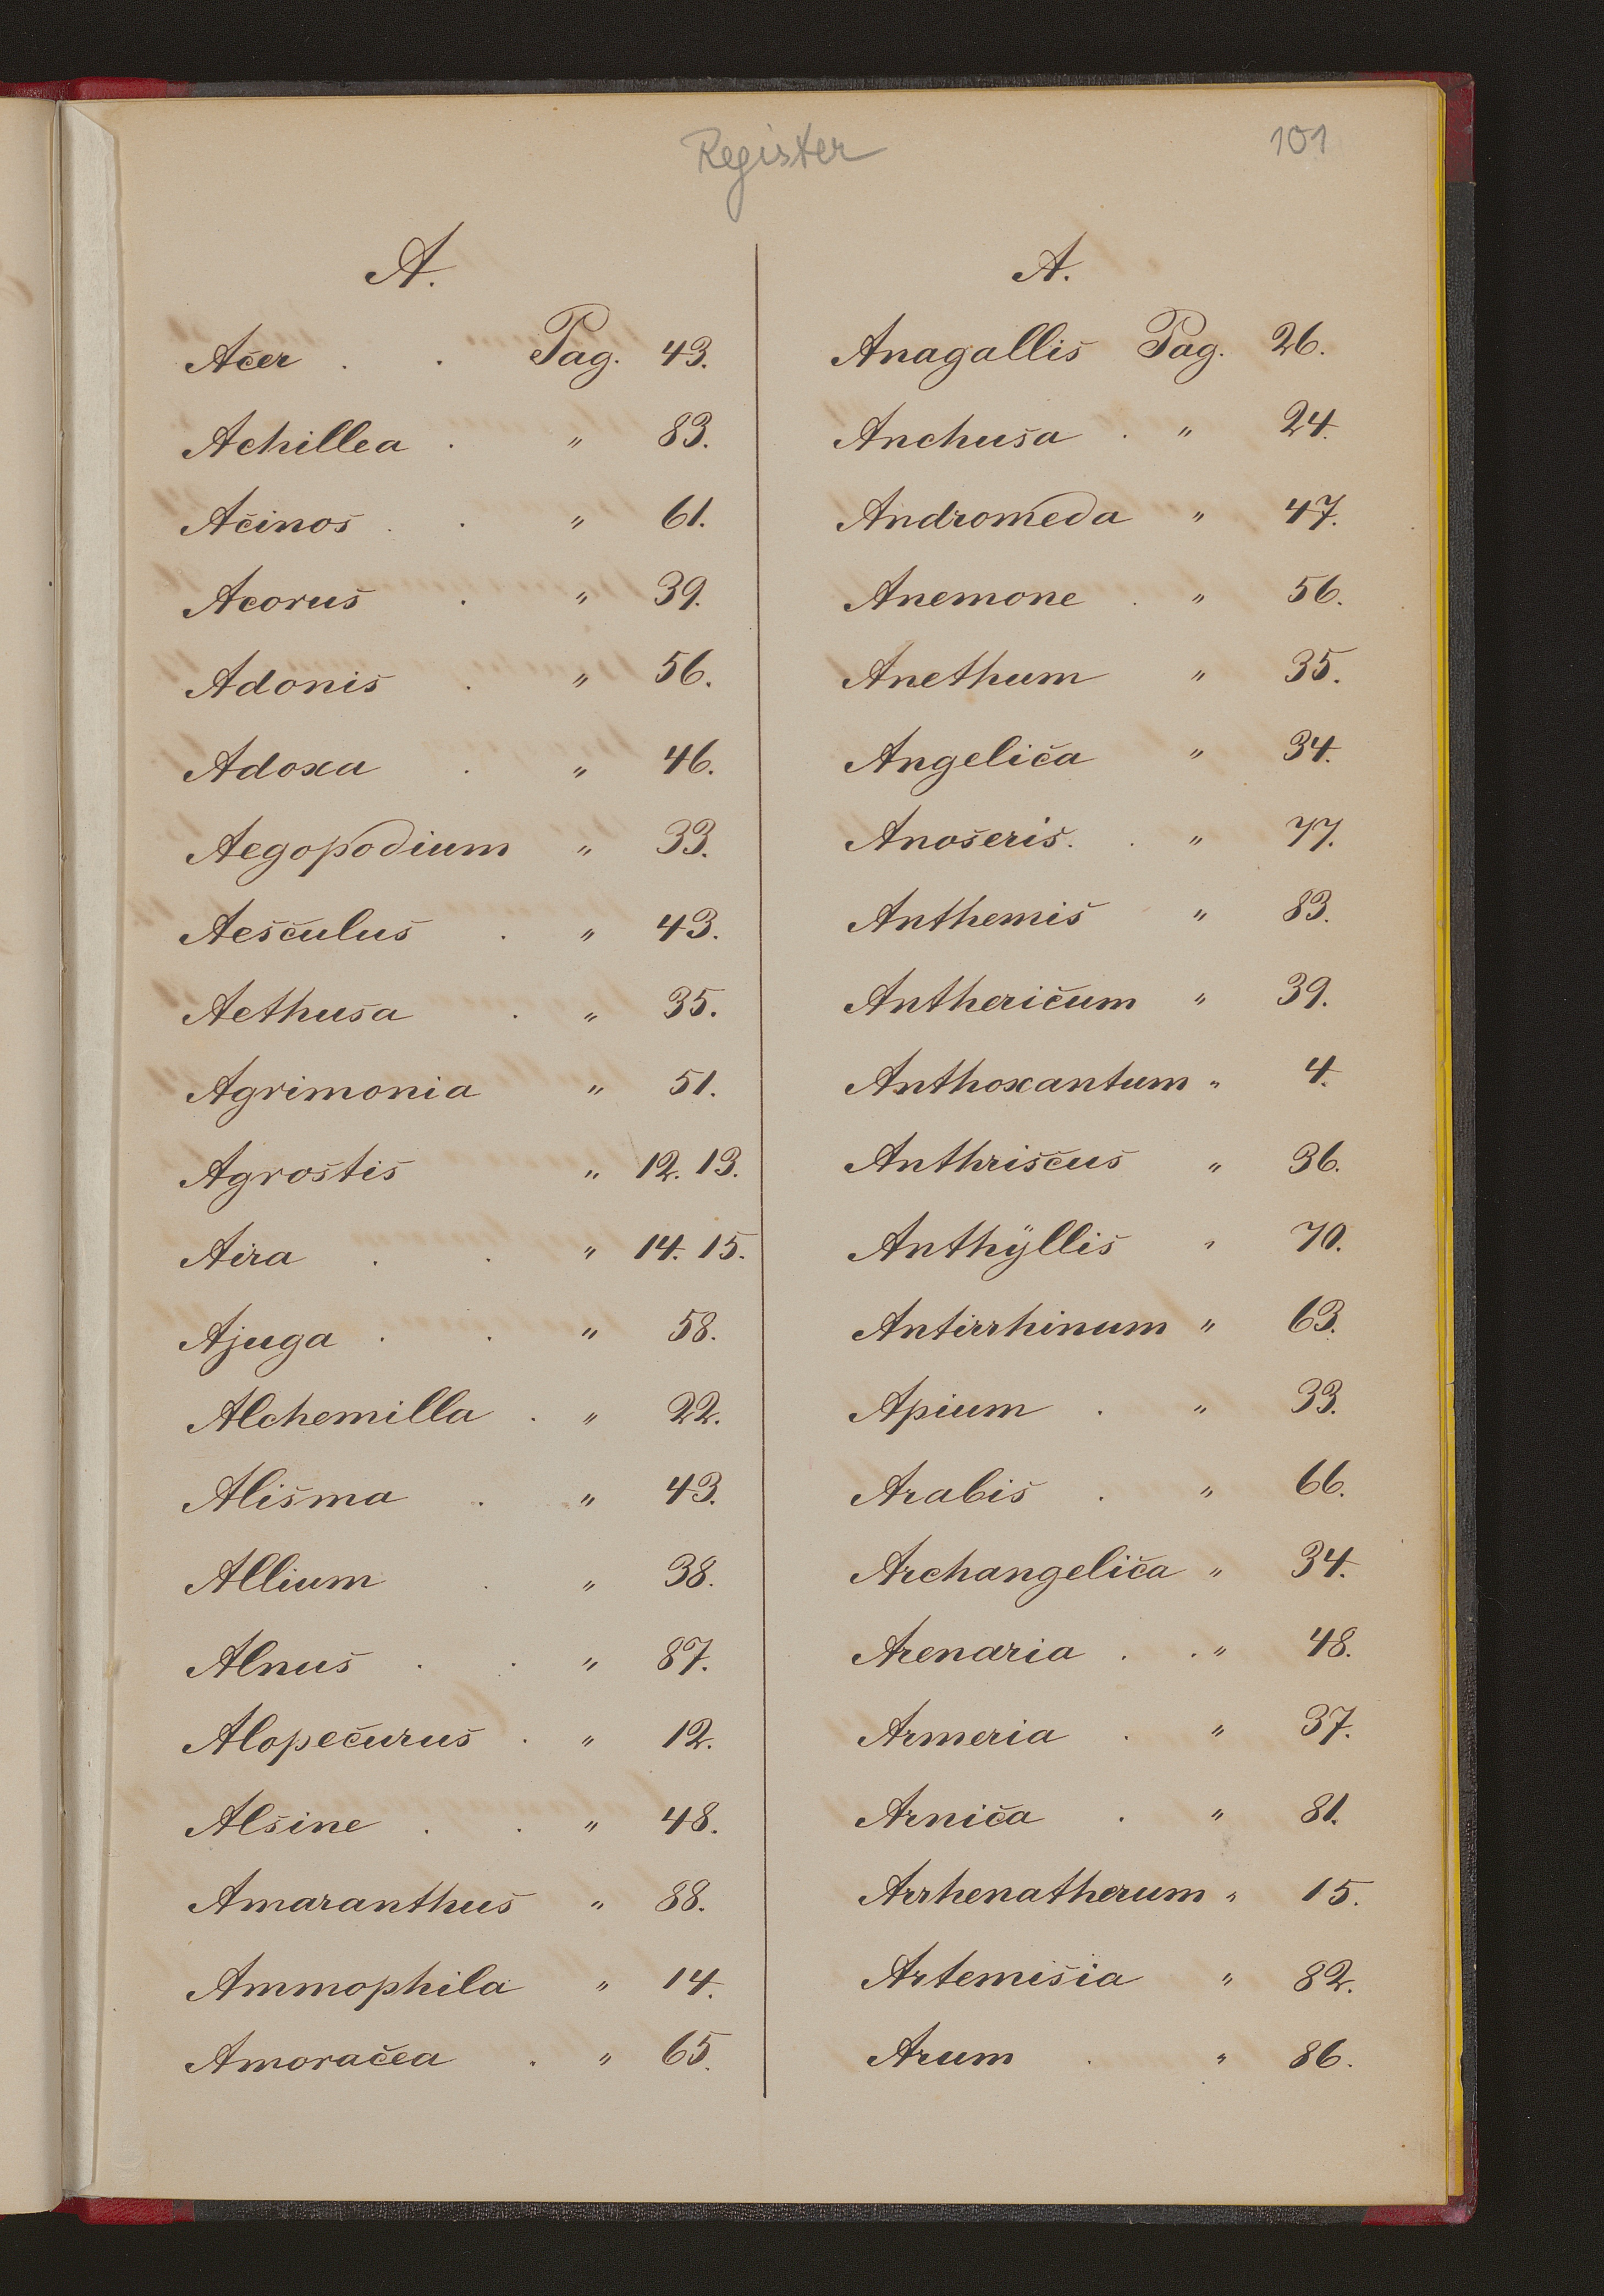 Register
101
A.
Acer . . Pag. 43.
Achillea . " 83.
Acinos . . " 61.
Acorus . " 39.
Adonis . " 56.
Adoxa . " 46.
Aegopodium " 33.
Aesculus . " 43.
Aethusa . " 35.
Agrimonia " 51.
Agrostis " 12. 13.
Aira . . " 14. 15.
Ajuga . . " 58.
Alchemilla . " 22.
Alisma . " 43.
Allium . " 38.
Alnus . . " 87.
Alopecurus . " 12.
Alsine . . " 48.
Amaranthus " 88.
Ammophila " 14.
Amoracea . " 65.
A.
Anagallis Pag. 26.
Anchusa . " 24.
Andromeda " 47.
Anemone . " 56.
Anethum " 35.
Angelica " 34.
Anoseris. . " 77.
Anthemis " 83.
Anthericum " 39.
Anthoxantum " 4.
Anthriscus " 36.
Anthÿllis " 70.
Antirrhinum " 63.
Apium . " 33.
Arabis . " 66.
Archangelica " 34.
Arenaria . . " 48.
Armeria . " 37.
Arnica . " 81.
Arrhenatherum " 15.
Artemisia " 82.
Arum . " 86.